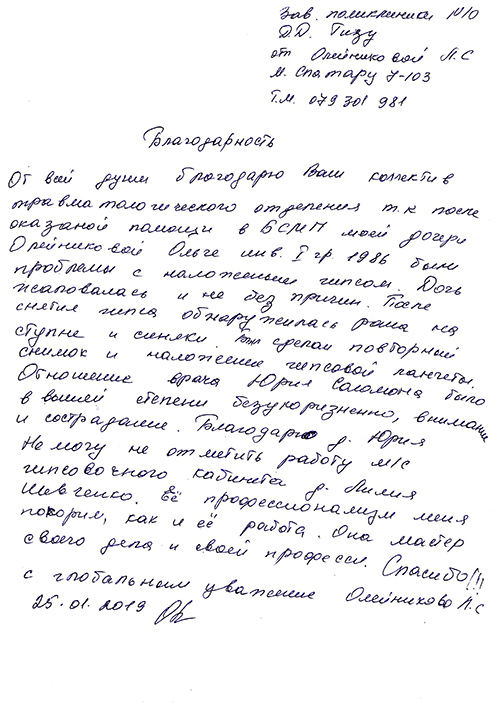 зав. поликлиники №10
Д.Д. Гизу
от Олейниковой Л.С
М. Спатару 7-103
Т.М. 079 301 981
Благодарность
От всей души благодарю Ваш коллектив
травматологического отделения т.к после
оказаной помощи в БСМП моей дочери
Олейниковой Ольге инв. I гр. 1986 были
проблемы с наложеным гипсом. Дочь
жаловалась и не без причин. После
снятия гипса обнаружилась рана на
ступне и синяки. Был сделан повторный
снимок и наложение гипсовой лангеты.
Отношение врача Юрия Саломона было
в вышей степени безукоризненно, внимание
и сострадание. Благодарю д. Юрия
Не могу не отметить работу м/с
гипсовочного кабинета д. Лилия
Шевченко. Её профессионализм меня
покорил, как и её работа. Она мастер
своего дела и своей професси. Спасибо!!!
с глобальным уважение Олейникова Л.С
25.01.2019